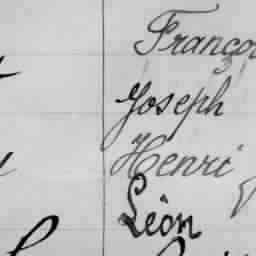 Françoi
Joseph
Henri
Léon